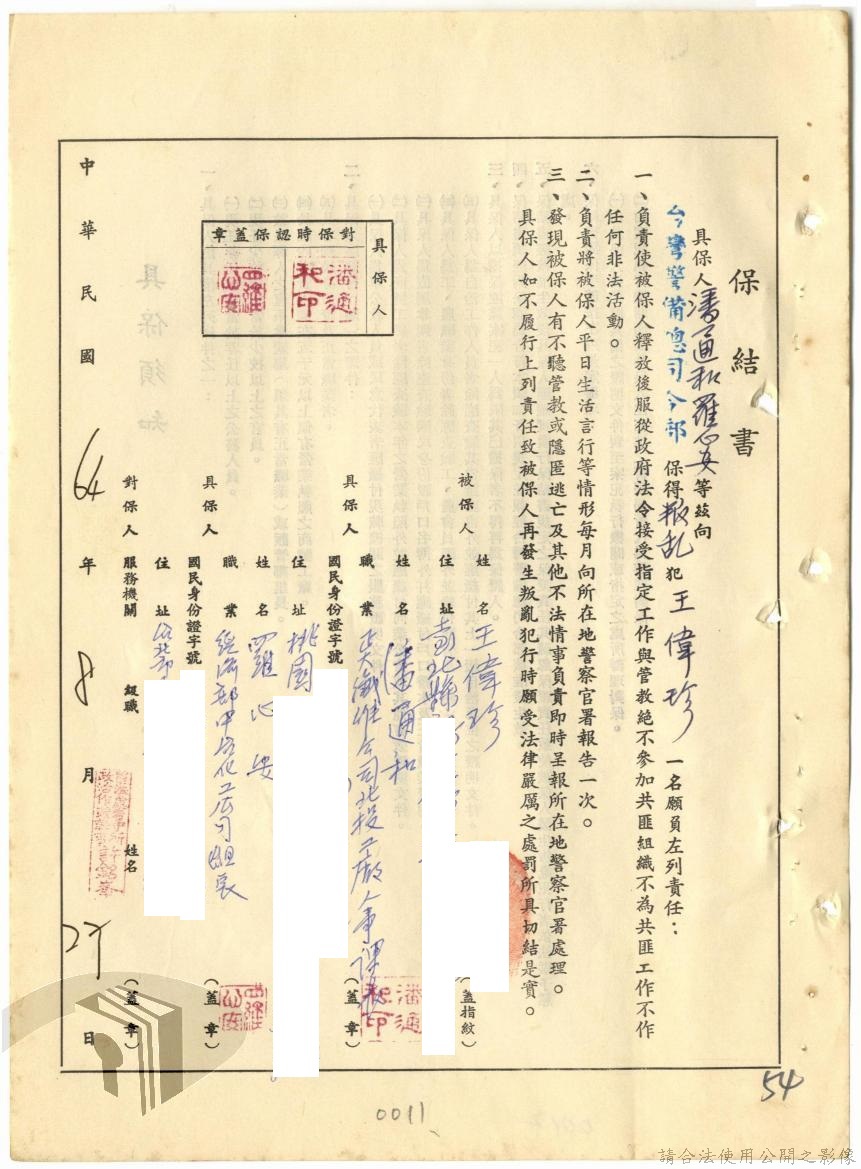 保結書
具保人潘通和羅心安等茲向
台灣警備總司令部 保得叛乱犯王偉珍一名願負左列責任：
一、負責使被保人釋放後服從政府法令接受指定工作與管教絕不參加共匪組織不為共匪工作不作
任何非法活動。
二、負責將被保人平日生活言行等情形每月向所在地警察官署報告一次。
三、發現被保人有不聽管教或隱匿逃亡及其他不法情事負責即時呈報所在地警察官署處理。
具保人如不履行上列責任致被保人再發生叛亂犯行時願受法律嚴厲之處罰所具切結是實。
被保人
姓名 王偉珍
住址 台北縣
（蓋指紋）
具保人
姓名 潘通和
職業 公司北投工廠人事課長
國民身份證字號
（蓋章）
潘通和印
住址 桃園
具保人
姓名 羅心安
職業 經濟部中台化工公司組長
國民身份證字號
（蓋章）
羅心安
住址
對保人
服務機關
級職
姓名
（蓋章）
具保人
對保時認保蓋章
潘通和印
羅心安
中華民國64年8月27日
具保須知
54
0011
請合法使用公開之影像